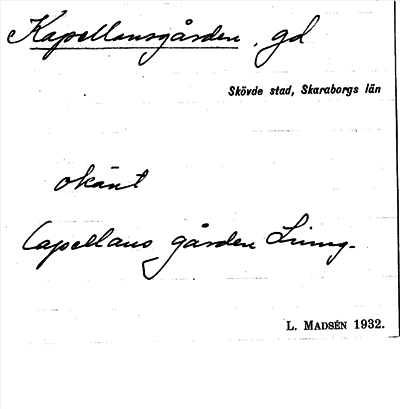 Kapellansgården, gd
Skövde stad, Skaraborgs län
okänt
Capellans gården
L. MADSÉN 1932.